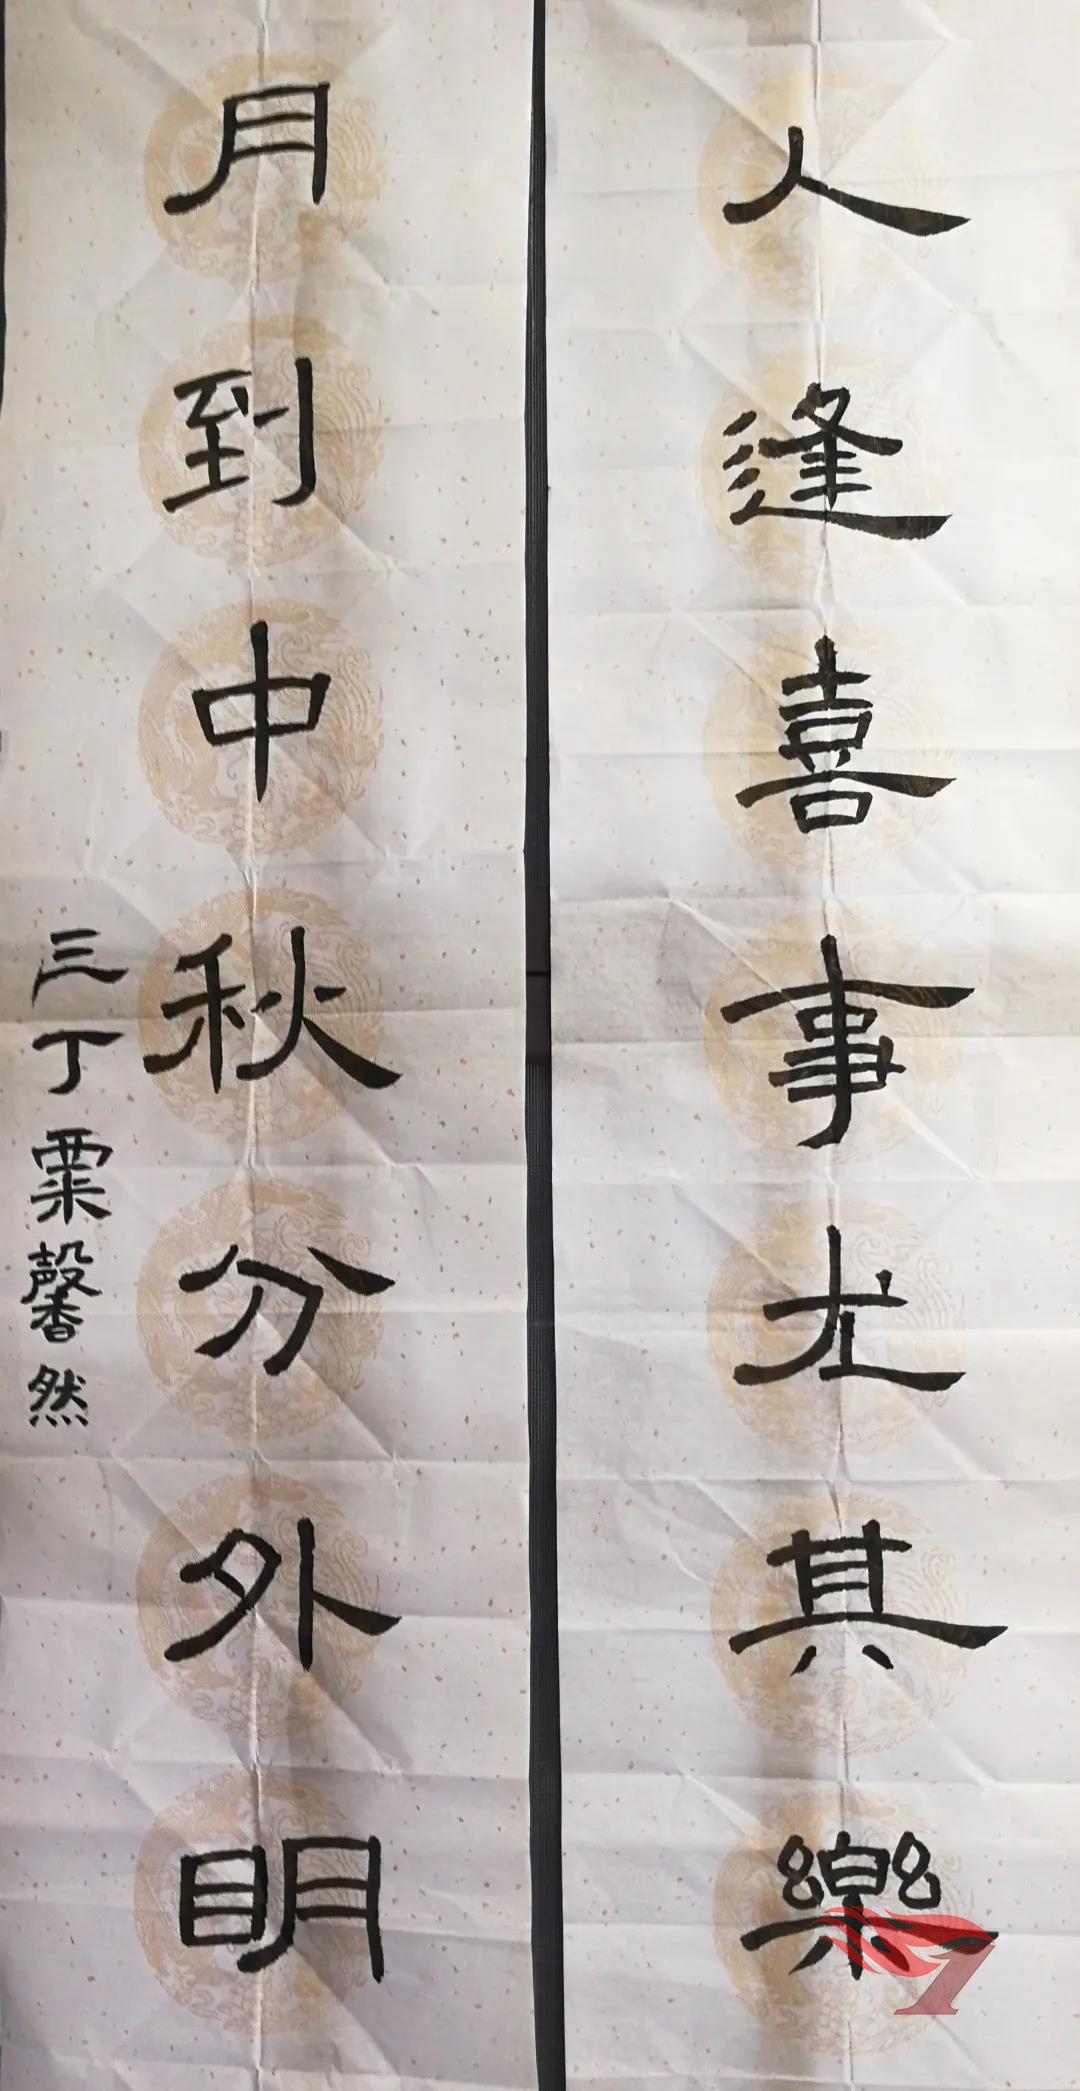 人逢喜事尤其樂
月到中秋分外明
三丁粟馨然